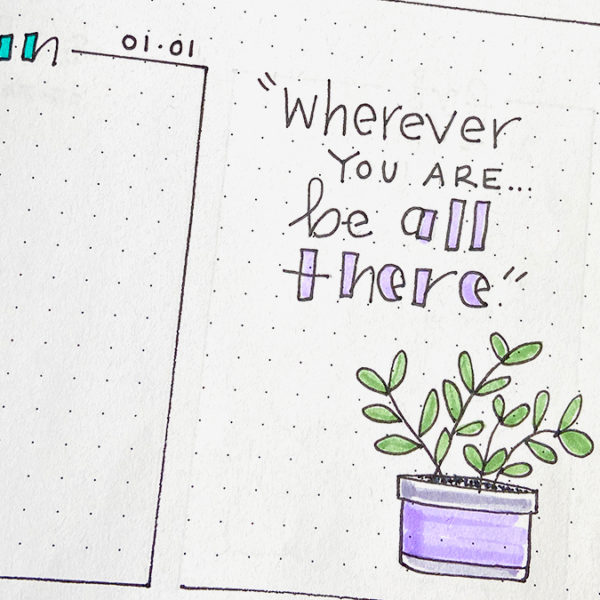 un 01.01
"Wherever
YOU ARE...
be all
there"